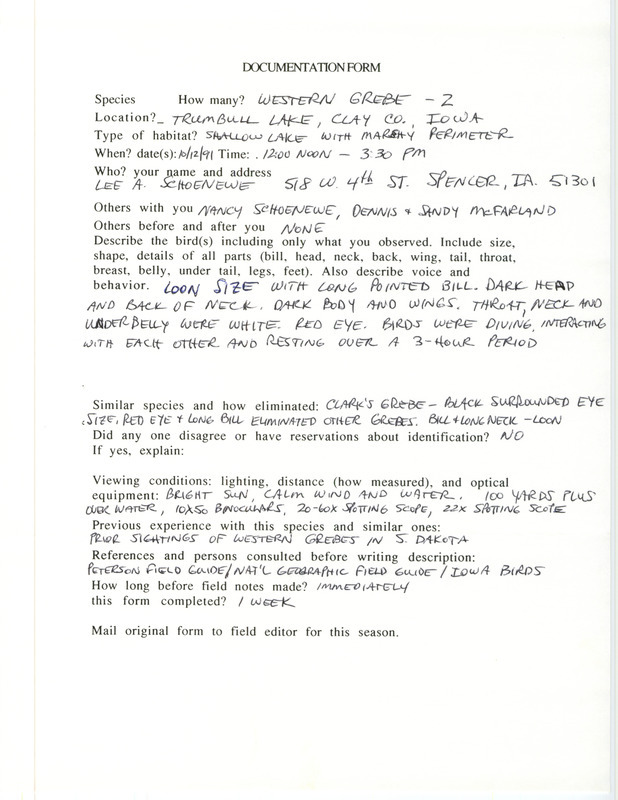 DOCUMENTATION FORM
Species How many? WESTERN GREBE - 2
Location? TRUMBULL LAKE, CLAY CO., IOWA
Type of habitat? SHALLOW LAKE WITH MARSHY PERIMETER
When? date(s): 10/12/91 Time: . 12:00 NOON - 3:30 PM
Who? your name and address
LEE A. SCHOENEWE 518 W. 4th ST. SPENCER, IA. 51301
Others with you NANCY SCHOENEWE, DENNIS & SANDY McFARLAND
Others before and after you NONE
Describe the bird(s) including only what you observed. Include size,
shape, details of all parts (bill, head, neck, back, wing, tail, throat,
breast, belly, under tail, legs, feet). Also describe voice and
behavior. LOON SIZE WITH LONG POINTED BILL. DARK HEAD
AND BACK OF NECK. DARK BODY AND WINGS. THROAT, NECK AND
UNDERBELLY WERE WHITE. RED EYE. BIRDS WERE DIVING, INTERACTING
WITH EACH OTHER AND RESTING OVER A 3-HOUR PERIOD
Similar species and how eliminated: CLARK'S GREBE - BLACK SURROUNDED EYE
SIZE, RED EYE & LONG BILL ELIMINATED OTHER GREBES. BILL & LONG NECK - LOON
Did any one disagree or have reservations about identification? NO
If yes, explain:
Viewing conditions: lighting, distance (how measured), and optical
equipment: BRIGHT SUN, CALM WIND AND WATER. 100 YARDS PLUS
OVER WATER, 10X50 BINOCULARS, 20-60X SPOTTING SCOPE, 22X SPOTTING SCOPE
Previous experience with this species and similar ones:
PRIOR SIGHTINGS OF WESTERN GREBES IN S. DAKOTA
References and persons consulted before writing description:
PETERSON FIELD GUIDE/NAT'L GEOGRAPHIC FIELD GUIDE/IOWA BIRDS
How long before field notes made? IMMEDIATELY
this form completed? 1 WEEK
Mail original form to field editor for this season.